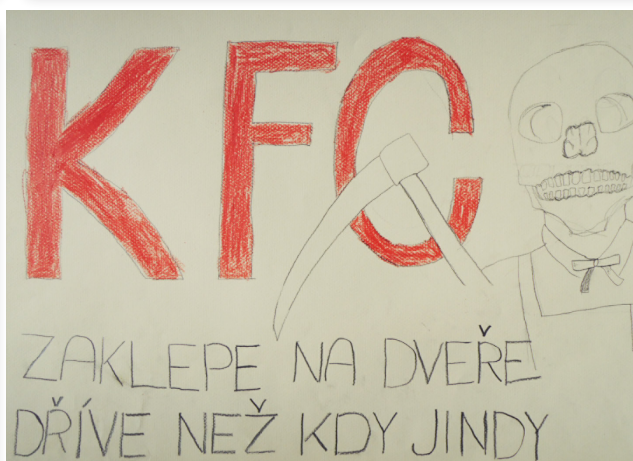 KFC
ZAKLEPE NA DVEŘE
DŘÍVE NEŽ KDY JINDY